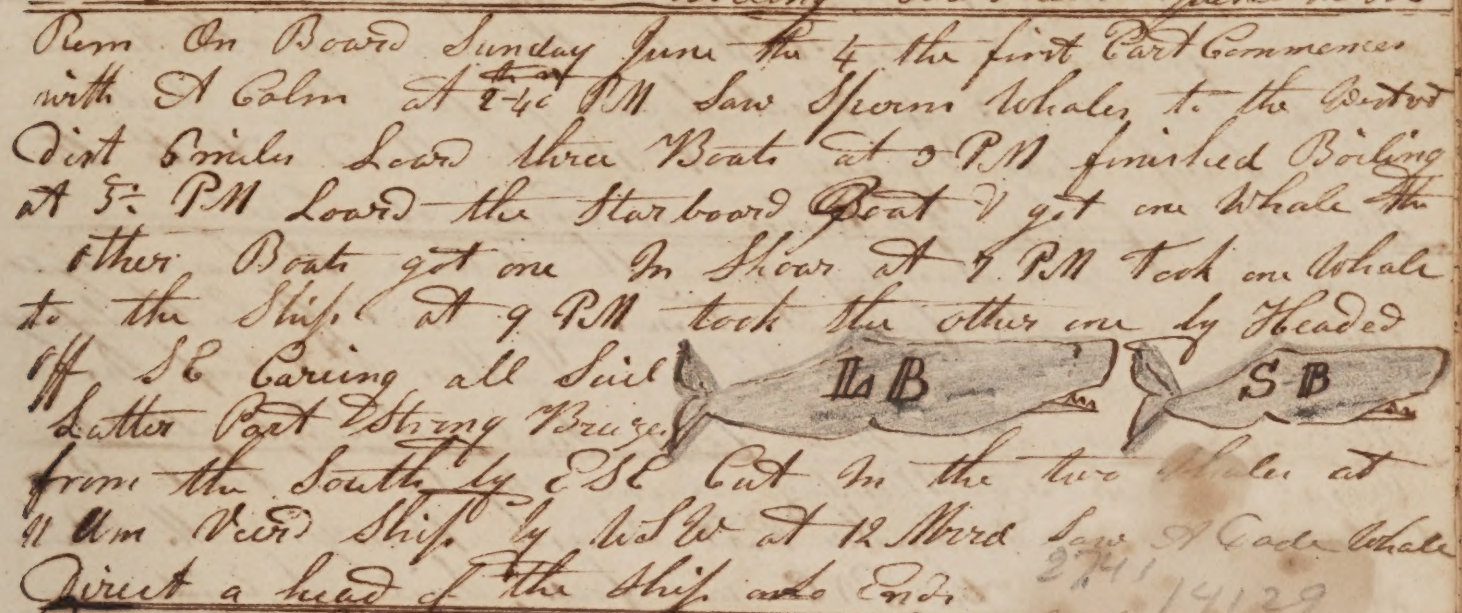 Rem On Board Sunday June the 4 the first Part Commences
with A Calm at 2-40 PM Saw Sperm Whales to the Westwd
Dist 6 miles Loard three Boats at 3 PM finished Boiling
at 5 PM Loard the Starboard Boat & got one Whale the
other Boats got one In Shoar at 7 PM Took one Whale
to the Ship at 9 PM took the other one by Headed
off SE Careing all Sail
LB
SB
Latter Part Strong Breeze
from the South by ESE Cut In the two Whales at
11 Am Veerd Ship by WSW at 12 Mird Saw A Whale
Direct a head of the Ship Ends
14129